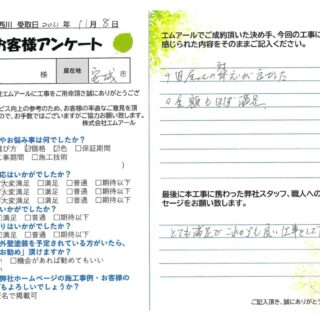 西川 受取日 2021年 11月 8日
お客様アンケート
居住地 宮城市
エムアールに工事をご用命頂き誠にありがとうござ
ビス向上の参考のため、お客様の率直なご意見を頂
ので、お手数ではございますがご協力お願い致します。
株式会社エムアール
やお悩み事は何でしたか？
選び方 ☑価格 ☑色 □保証期間
工事期間 □施工技術
応はいかがでしたか？
大変満足 □満足 □普通 □期待以下
大変満足 □満足 □普通 □期待以下
がでしたか？
□満足 □普通 □期待以下
りはいかがでしたか？
□満足 □普通 □期待以下
外壁塗装を予定されている方がいたら、
お勧め」頂けますか？
い □機会があれば勧めてもいい
い
弊社ホームページの施工事例・お客様の
てもよろしいでしょうか？
匿名で掲載可
エムアールでご成約頂いた決め手、今回の工事に
感じられた内容をそのままご記入ください。
金額もほぼ満足
最後に本工事に携わった弊社スタッフ、職人への
セージをお願い致します。
とても満足 これからも良い仕事をして
ご記入頂き、誠にありがとう